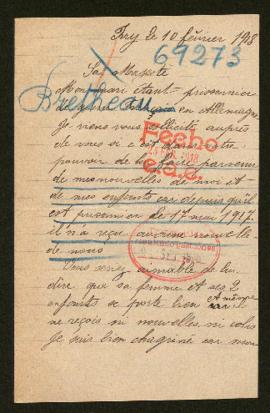 Ivry le 10 février 1918
69273
Sa Majesté
Bretheau
Mon mari étant prisonnier
de guerre français en Allemagne
Je viens vous sollicité auprès
de vous si c'est dans votre
pouvoir de lui faire parvenir
Fecho
1918
e.a.c.
de mes nouvelles de moi et
de mes enfants car depuis qu'il
est prisonnier du 17 1917
il n'a reçu aucune nouvelle
de nous
Vous serez aimable de lui
dire que sa femme et ses 2
enfants se porte bien
ne reçois ni nouvelles ni colis
Je suis bien chagriné car mon